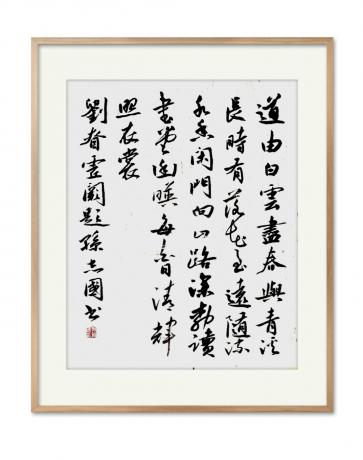 道由白雲盡春與青溪
長時有落花至遠隨流
水香閑門向山路深柳讀
書堂幽映每白日清輝
照衣裳
劉眘虛闕題孫志國書